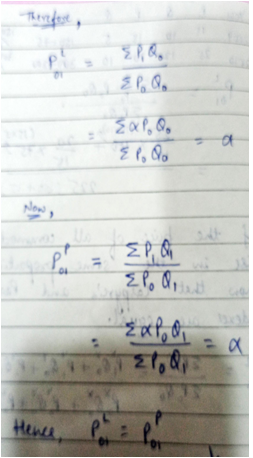 Therefore,
P₀₁ᴸ = ΣP₁Q₀ / ΣP₀Q₀
= ΣαP₀Q₀ / ΣP₀Q₀ = α
Now,
P₀₁ᴾ = ΣP₁Q₁ / ΣP₀Q₁
= ΣαP₀Q₁ / ΣP₀Q₁ = α
Hence, P₀₁ᴸ = P₀₁ᴾ